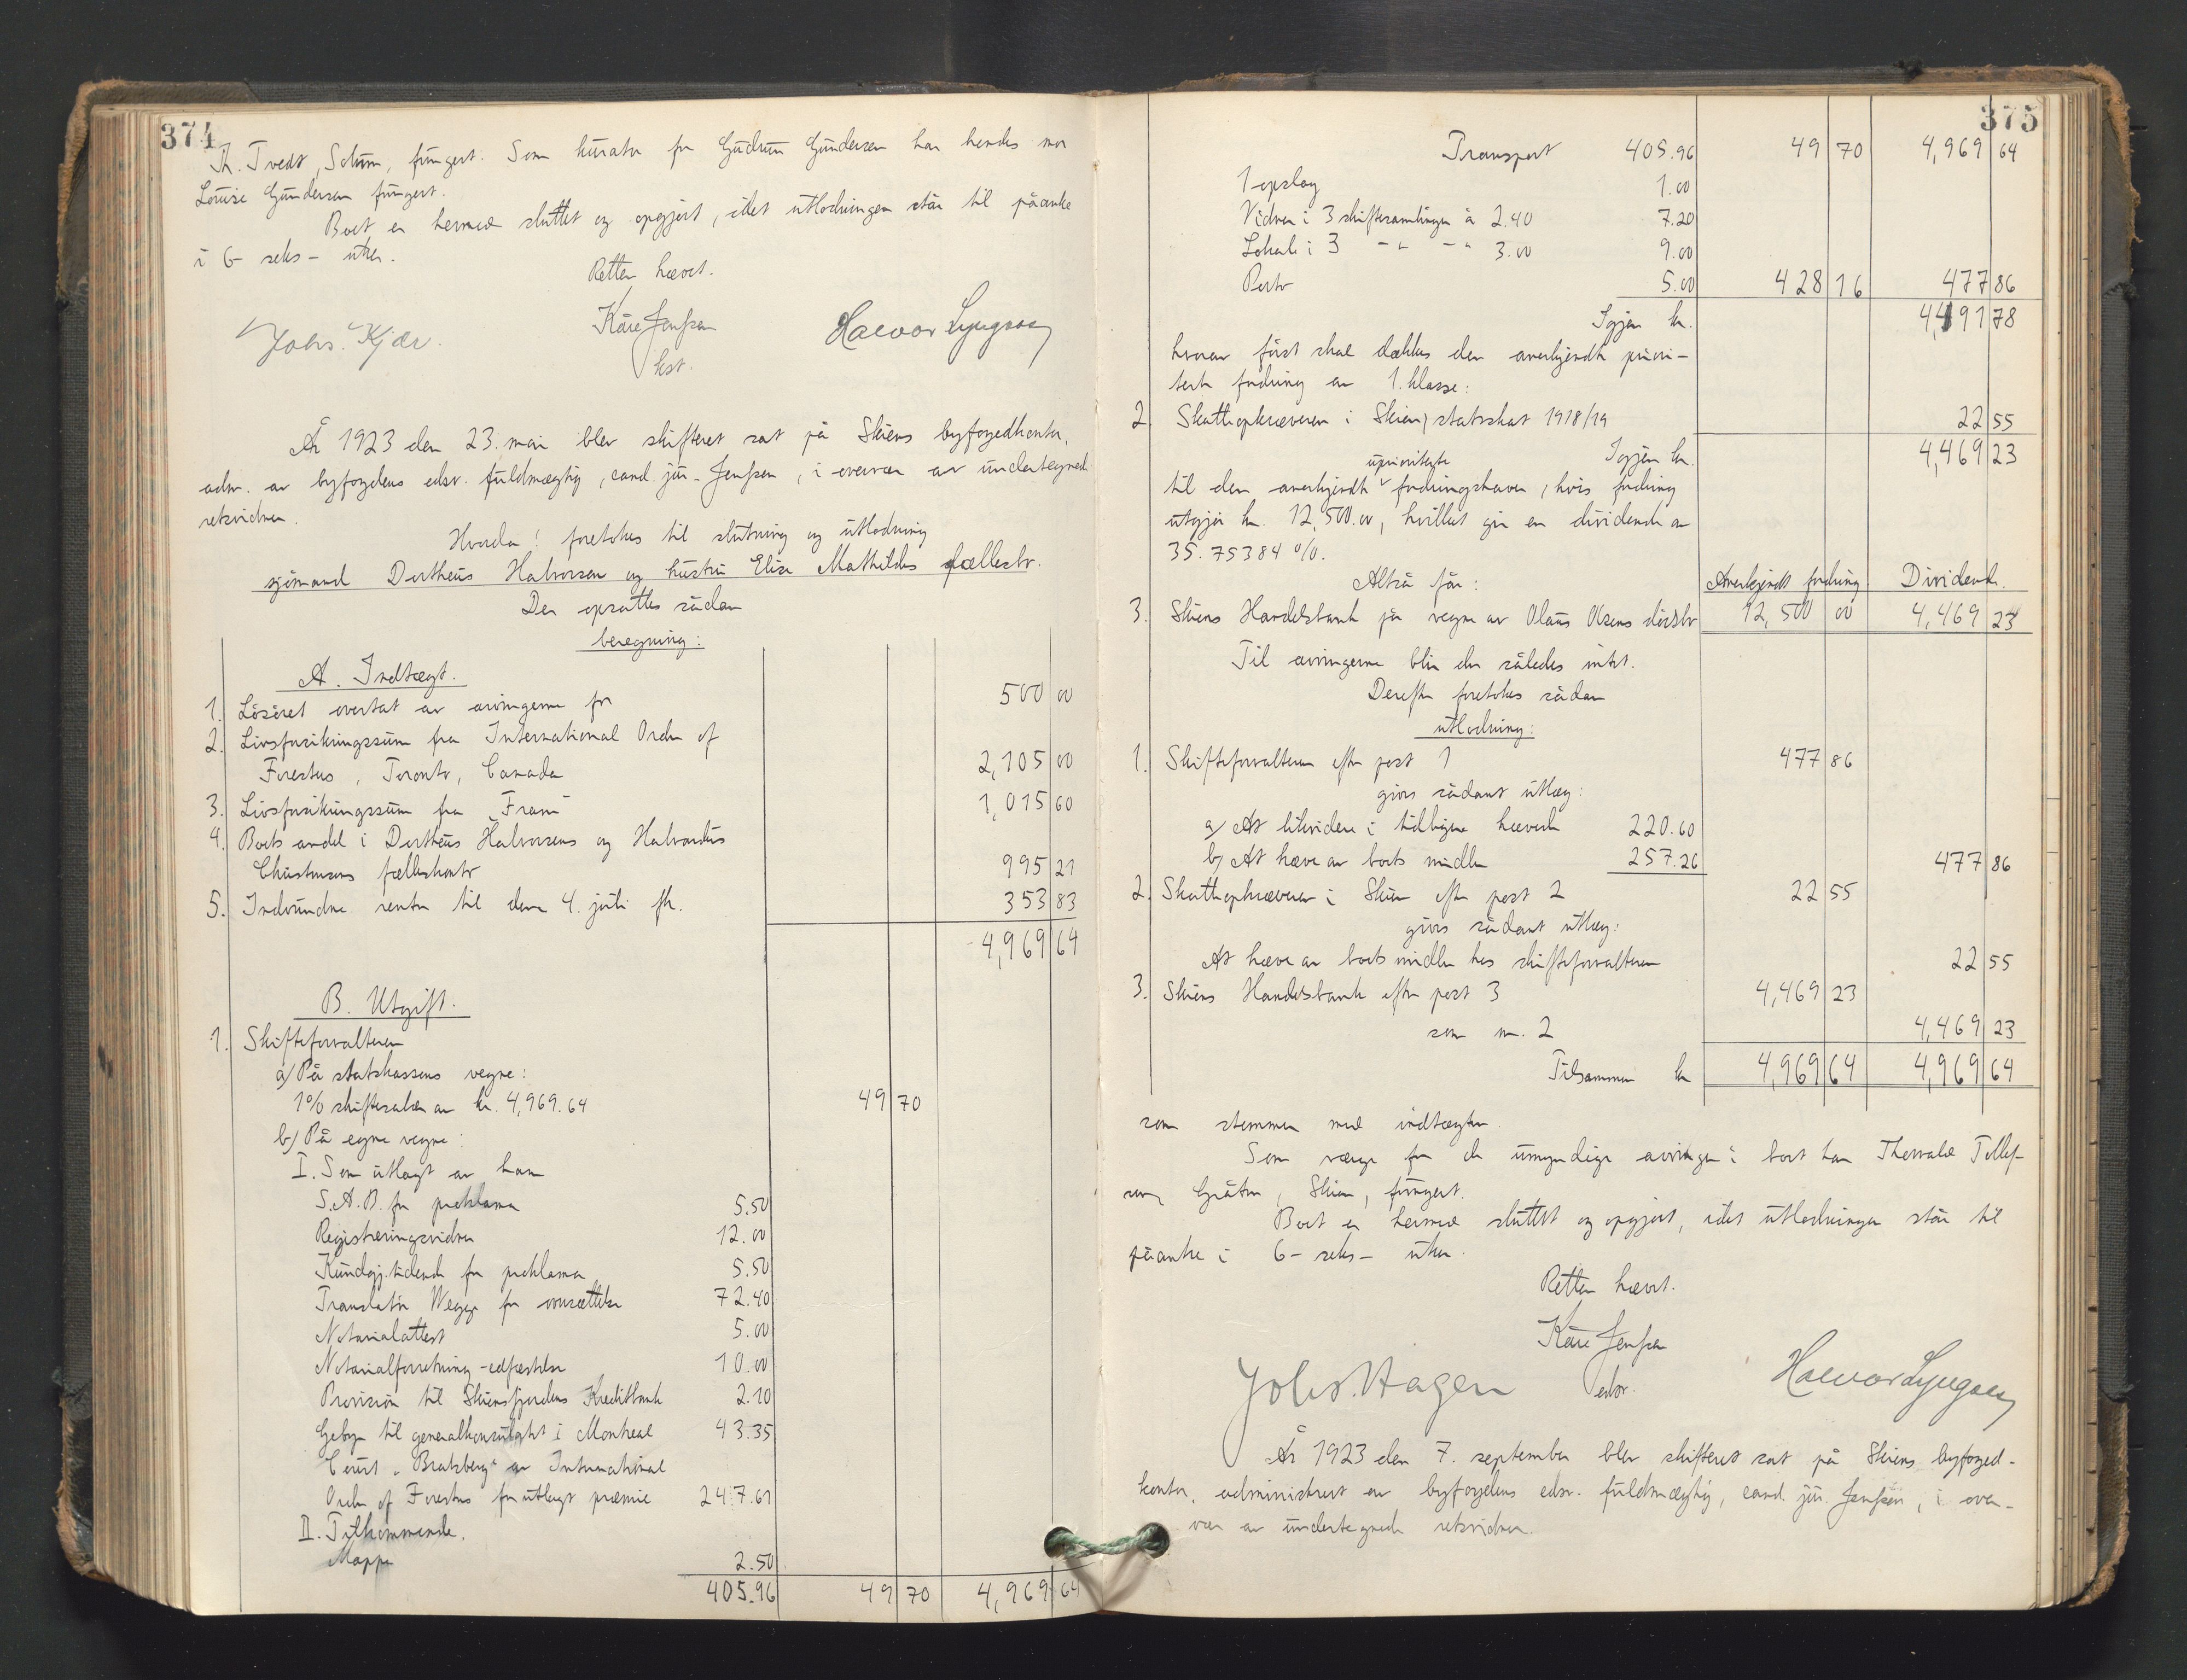 374
Th. Tvedt, Solum, fungert. Som kurator for Gudrun Gundersen har hendes mor
Louise Gundersen fungert.
Boet er hermed sluttet og opgjort, idet utlodningen står til påanke
i 6 - seks - uker.
Retten hævet.
Johs. Kjær.
Kåre Jenssen
kst.
Halvor Lyngaas
År 1923 den 23. mai blev skifteret sat på Skiens byfogedkontor,
adm. av byfogdens edsv. fuldmægtig, cand. jur. Jenssen, i overvær av undertegnede
retsvidner.
Hvorda! foretokes til slutning og utlodning
sjømand Dortheus Halvorsen og hustru Elise Mathildes fællesbo.
Der opsattes sådan
beregning:
A. Indtægt.
1. Løsøret overtat av arvingerne for 500 00
2. Livsforsikringssum fra International Order of
Foresters, Toronto, Canada 2,105 00
3. Livsforsikringssum fra "Fram" 1,015 60
4. Boets andel i Dortheus Halvorsens og Halvardus
Christensens felleskonto 995 21
5. Indvundne renter til denne 4. juli ft. 353 83
4,969 64
B. Utgift.
1. Skifteforvalteren
a) På statskassens vegne:
1% skiftesalær av kr. 4,969.64 49 70
b) På egne vegne:
I. Som utlagt av ham
S.A.B. for proklama 5.50
Registreringsvidner 12.00
Kundgj. tidende for proklama 5.50
Translatør Wegge for oversættelse 72.40
Notarialattest 5.00
Notarialforretning - edfæstelse 10.00
Provision til Skiensfjordens Kreditbank 2.10
Gebyr til generalkonsulatet i Montreal 43.35
Court "Bratsberg" av International
Order of Foresters for utlagt præmie 247.61
II. Tilkommende.
Mappe 2.50
405.96 49 70 4,969 64
375
Transport 405.96 49 70 4,969 64
1 opslag 1.00
Vidner i 3 skiftesamlinger à 2.40 7.20
Lokale i 3 -"- -"- 3.00 9.00
Porto 5.00 428 16 477 86
Igjen kr. 4,491 78
hvorav først skal dækkes den anerkjendte priori-
terte fordring av 1. klasse:
2. Skatteopkræveren i Skien, statsskat 1918/19 22 55
Igjen kr. 4,469 23
til den anerkjendte uprioriterte fordringshaver, hvis fordring
utgjør kr. 12,500.00, hvilket gir en dividende av
35.75384 %.
Altså får: Anerkjendt fordring Dividende.
3. Skiens Handelsbank på vegne av Olaus Olsens dødsbo 12,500 00 4,469 23
Til arvingerne blir der således intet.
Derefter foretokes sådan
utlodning:
1. Skifteforvalteren efter post 1 477 86
givs sådant utlæg:
a) At likvidere i tidligere hævede 220.60
b) At hæve av boets midler 257.26 477 86
2. Skatteopkræveren i Skien efter post 2 22 55
givs sådant utlæg:
At hæve av boets midler hos skifteforvalteren 22 55
3. Skiens Handelsbank efter post 3 4,469 23
som nr. 2 4,469 23
Tilsammen kr 4,969 64 4,969 64
som stemmer med indtægten.
Som værge for de umyndige arvinger i boet har Thorvald Tollef-
sen, Gråten, Skien, fungert.
Boet er hermed sluttet og opgjort, idet utlodningen står til
påanke i 6 - seks - uker.
Retten hævet.
Kåre Jenssen
edsv.
Johs. Hagen
Halvor Lyngaas
År 1923 den 7. september blev skifteret sat på Skiens byfoged-
kontor, administrert av byfogdens edsv. fuldmægtig, cand. jur. Jenssen, i over-
vær av undertegnede retsvidner.